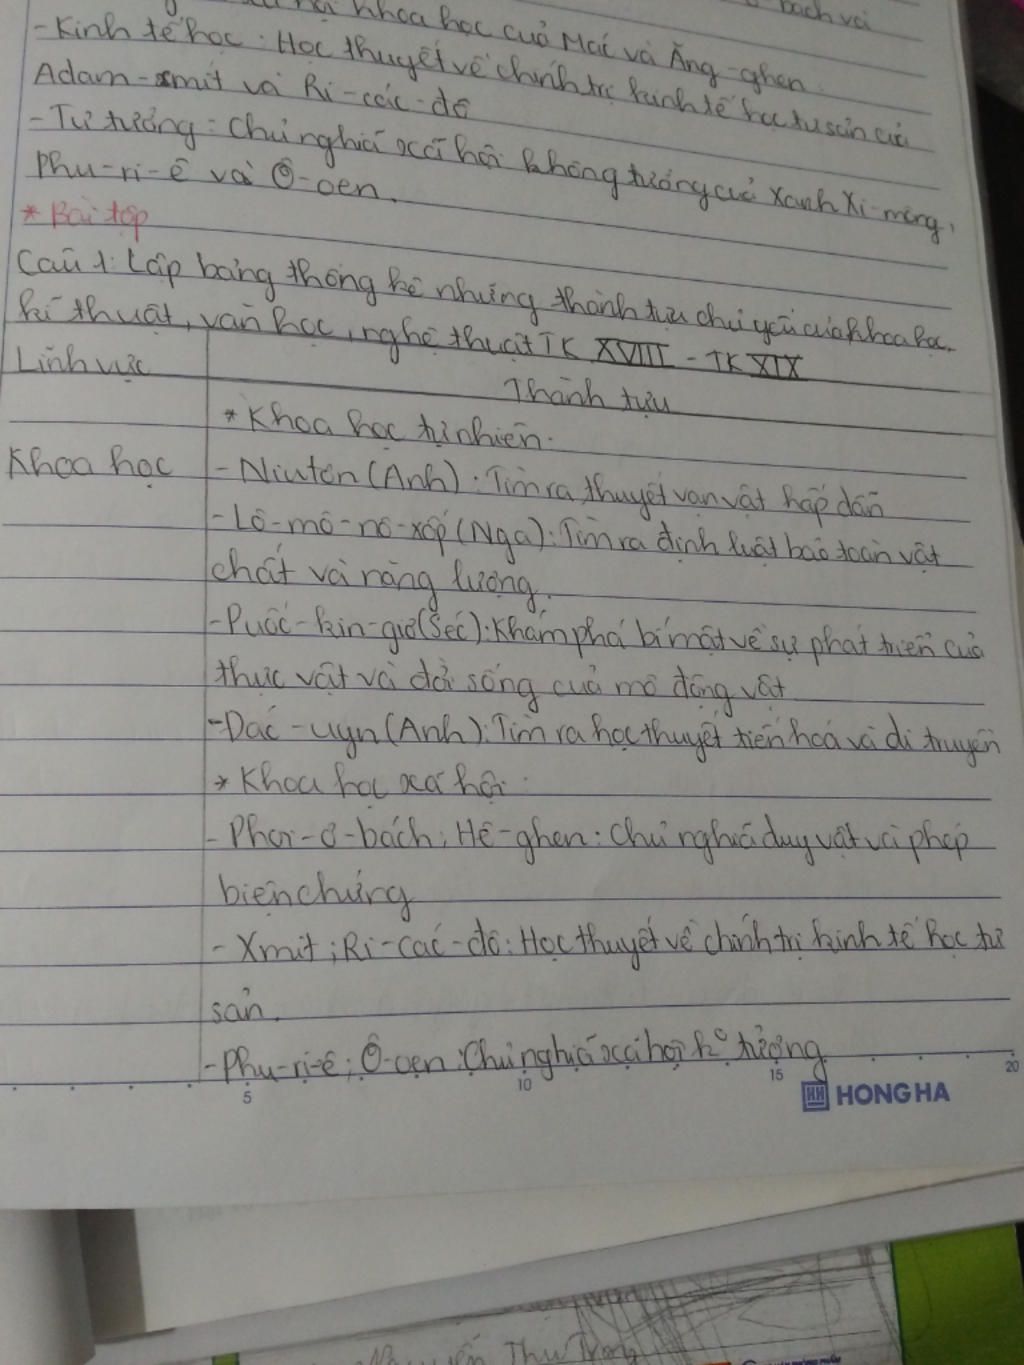 khoa học của Mác và Ăng-ghen
bách và
- Kinh tế học: Học thuyết về chính trị kinh tế học tư sản của
Adam-xmit và Ri-các-đô
- Tư tưởng: Chủ nghĩa xã hội không tưởng của Xanh Xi-mông,
Phu-ri-ê và Ô-oen.
* Bài tập
Câu 1: Lập bảng thống kê những thành tựu chủ yếu của khoa học,
kĩ thuật, văn học, nghệ thuật TK XVIII - TK XIX
Lĩnh vực
Thành tựu
* Khoa học tự nhiên.
Khoa học
- Niutơn (Anh): Tìm ra thuyết vạn vật hấp dẫn
- Lô-mô-nô-xốp (Nga): Tìm ra định luật bảo toàn vật
chất và năng lượng.
- Puốc-kin-giơ (Séc): Khám phá bí mật về sự phát triển của
thực vật và đời sống của mô động vật
- Đác-uyn (Anh): Tìm ra học thuyết tiến hoá và di truyền
* Khoa học xã hội:
- Phơi-ơ-bách; Hê-ghen: Chủ nghĩa duy vật và phép
biện chứng
- Xmit; Ri-các-đô: Học thuyết về chính trị kinh tế học tư
sản.
- Phu-ri-ê; Ô-oen: Chủ nghĩa xã hội k° tưởng
5 10 15 20
HH HONG HA
Thu Trang